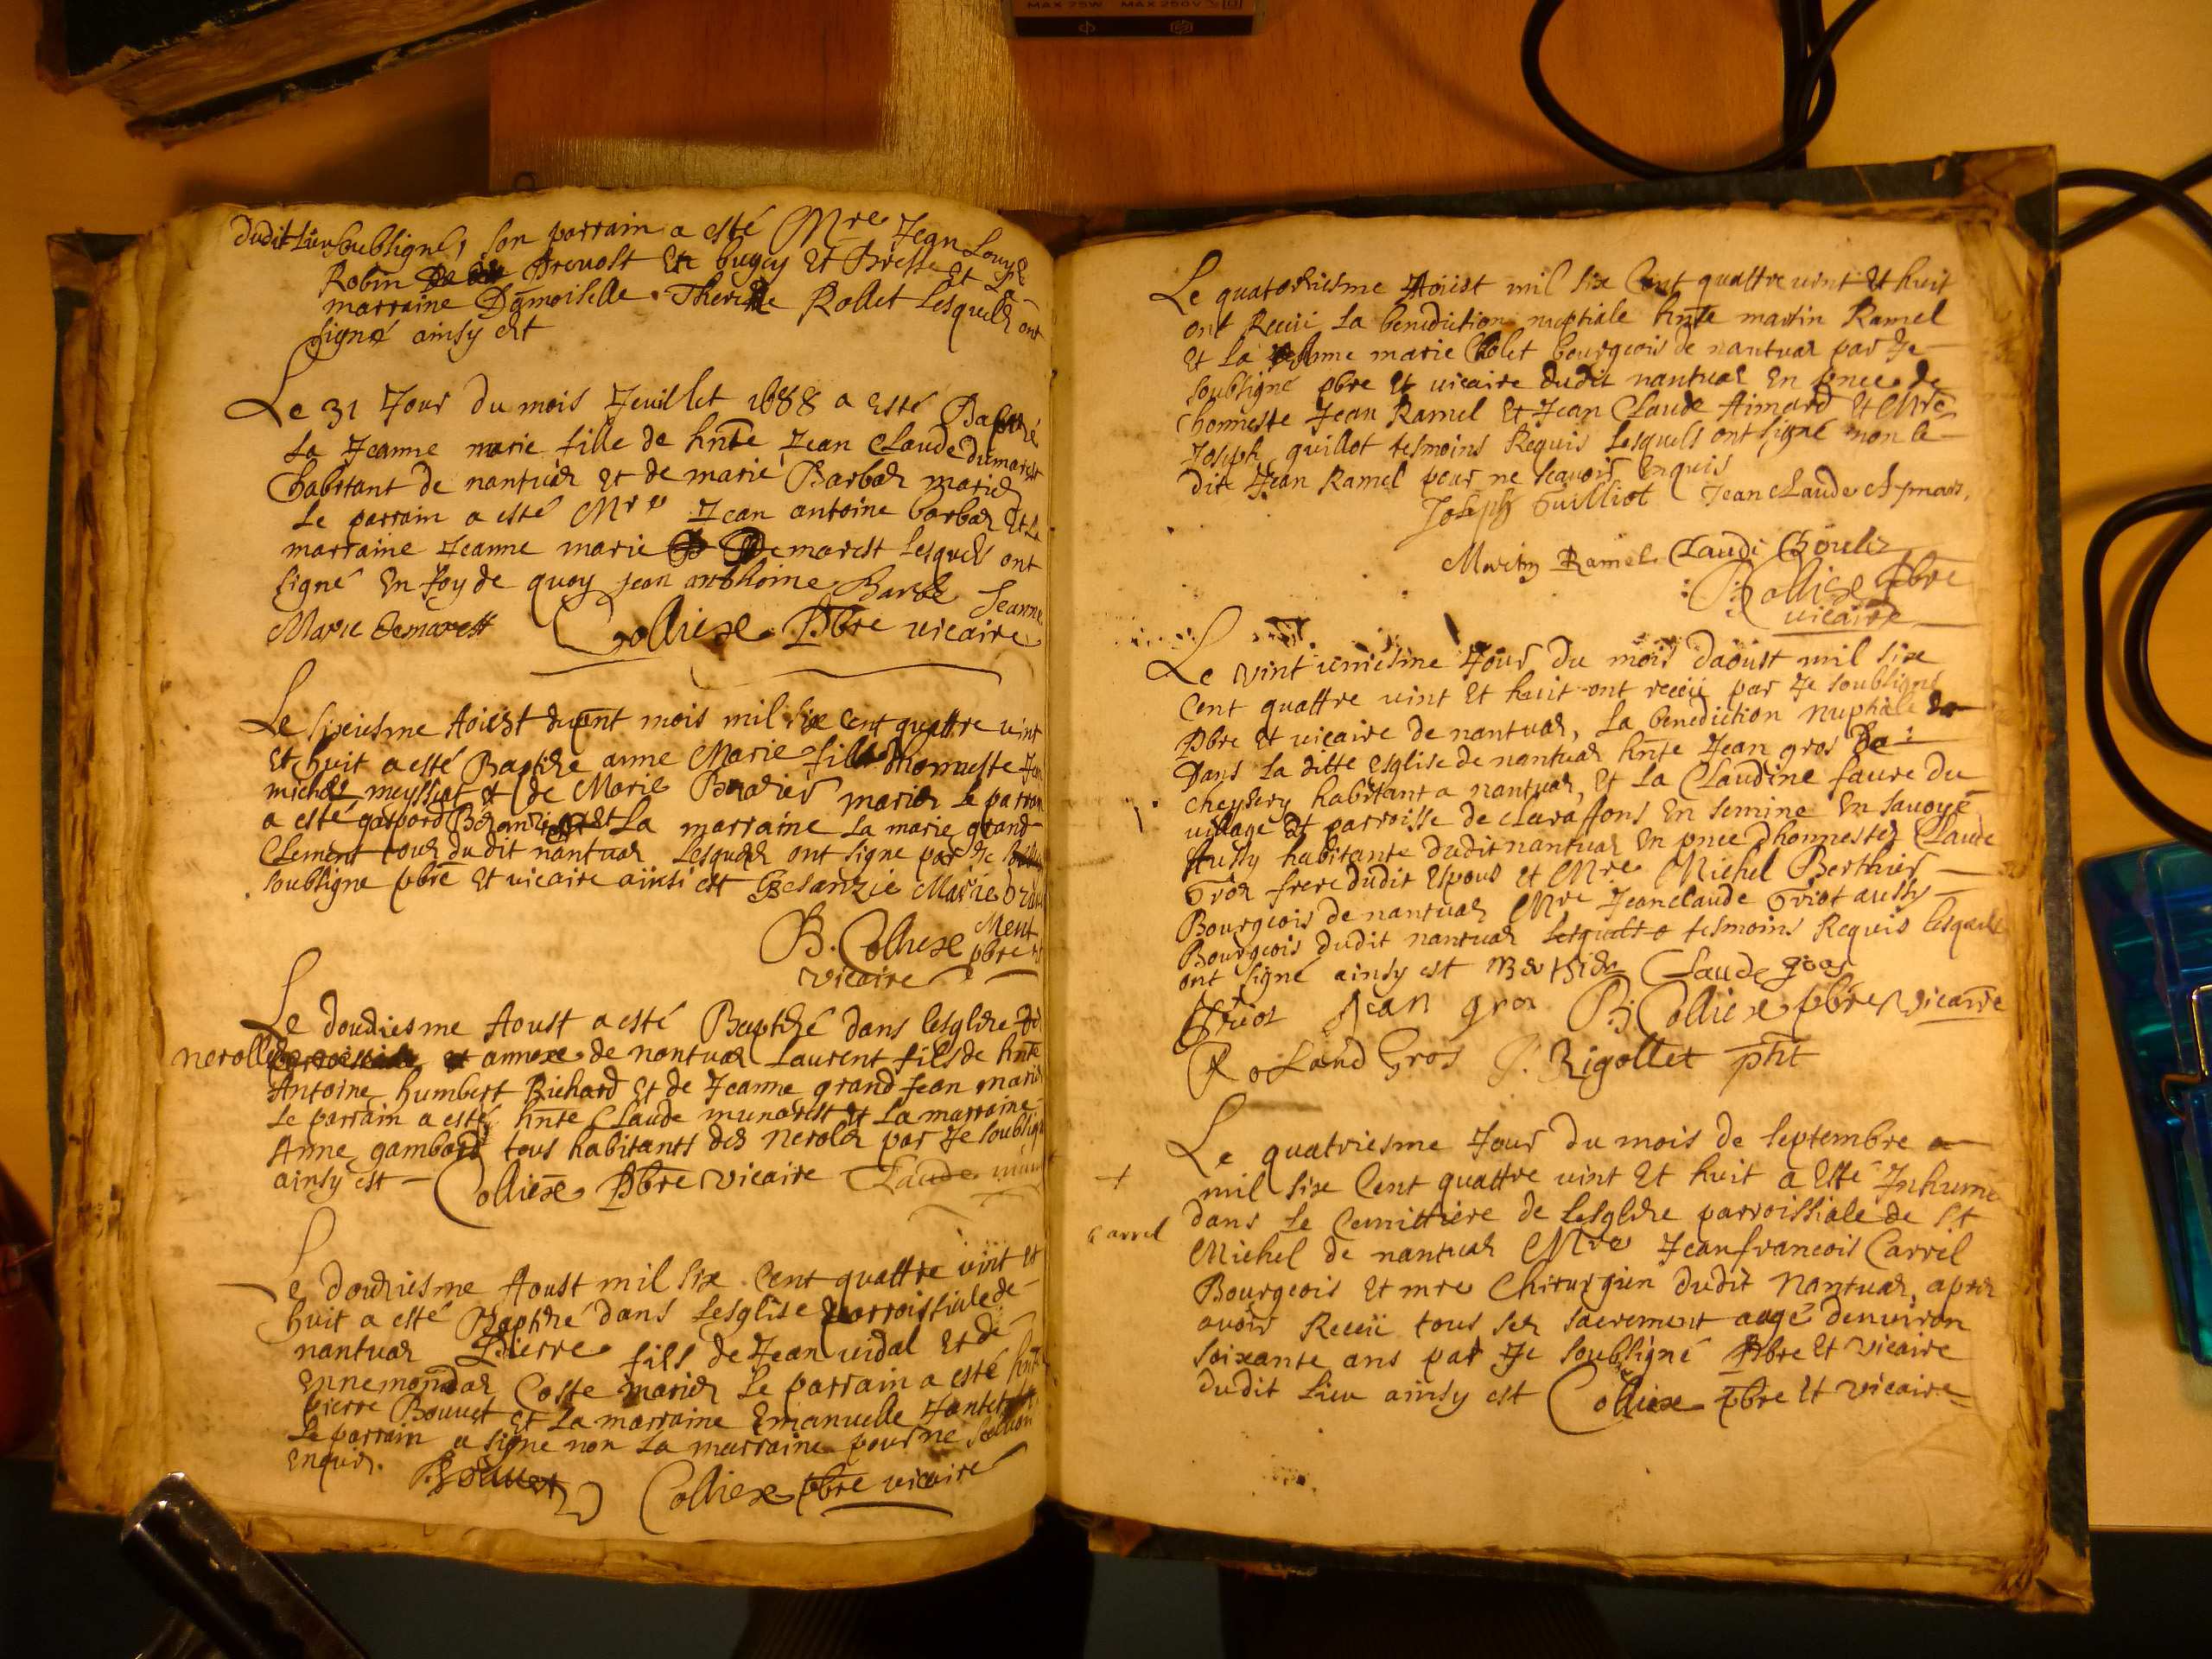 MAX 75W MAX 250V
dudit Lieu soubsigné, son parrain a esté Mre Jean Louys
Robin Prevost En bugey Et Bresse Et La
marraine Damoiselle Therese Rollet Lesquels ont
signé ainsy est
Le 31 Jour du mois Jeuillet 1688 a esté Baptizé
La Jeanne marie fille de hnte Jean Claude dumarest
habitant de nantua Et de marie Barbaz mariez
Le parrain a esté Mre Jean antoine barbaz Et La
marraine Jeanne marie Demarest Lesquels ont
signé En foy de quoy jean anthoine Barbe Jeanne
Marie Demarest Colliex Pbre vicaire
Le sixiesme Aoust mois mil six Cent quattre vint
Et huit a esté Baptize anne Marie fille dhonneste
michel meyssiat Et de Marie mariez Le parrain
a esté gaspard Et La marraine La marie grand
Clement tous du dit nantuaz Lesquelz ont signe par Je
soubsigne pbre Et vicaire ainsi est Besanzie Marie
Ment
B. Colliex pbre
vicaire
Le douziesme Aoust a esté Baptizé dans lesglize
nerolle annexe de nantuaz Laurent fils de hnte
Antoine humbert Richard Et de Jeanne grand Jean mariez
Le parrain a esté hnte Claude Et La marraine
Anne gambard tous habitants des Nerolez par Je soubsigné
ainsy est Colliex Pbre vicaire Claude
Le douziesme Aoust mil six Cent quattre vint Et
huit a esté Baptizé dans Lesglise parroissiale de
nantuaz Pierre fils de Jean vidal Et de
Coste mariez Le parrain a esté hnte
pierre Bouvet Et La marraine Emanuelle
Le parrain a signe non La marraine pour ne scavoir
enquis. Bouvet Colliex pbre vicaire
Le quatorziesme Aoust mil six Cent quattre vint Et huit
ont Receu La benediction nuptiale hnte martin Ramel
Et La marie bourgeois de nantuaz par Je
soubsigné pbre Et vicaire dudit nantuaz En pnce de
honneste Jean Ramel Et Jean Claude Aimard Et Mre
Joseph guillot tesmoins Requis Lesquels ont signé non le
dit Jean Ramel pour ne scavoir Enquis
Joseph Guilliot Jean Claude
Martin Ramel Claudi
B Colliex Pbre
vicaire
Le vint uniesme Jour du mois daoust mil six
Cent quattre vint Et huit ont receu par Je soubsigné
Pbre Et vicaire de nantuaz, La benediction Nuptiale
Dans La ditte esglise de nantuaz hnte Jean gros De
habitant a nantuaz, Et La Claudine faure du
village Et parroisse de En semine En savoye
Aussy habitante dudit nantuaz En pnce dhonnestez Claude
Groz frere dudit Espous Et Mre Michel Berthier
Bourgeois de nantuaz Mre Jeanclaude Griot aussy
Bourgeois dudit nantuaz tesmoins Requis Lesquels
ont signé ainsy est Claude gros
Griot Jean gros B Colliex pbre vicaire
Roland Gros J. Rigollet pnt
Le quatriesme Jour du mois de septembre
+ mil six Cent quattre vint Et huit a Esté Inhume
dans Le Cemittiere de Lesglize parroissiale de St
Carrel Michel de nantuaz Mre Jeanfrancois Carrel
Bourgeois Et mre Chirurgien dudit Nantuaz, aprez
avoir Receu tous sez sacrement aagé denviron
soixante ans par Je soubsigné Pbre Et vicaire
dudit Lieu ainsy est Colliex pbre Et vicaire